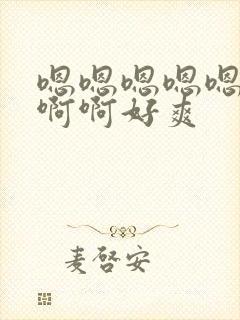 嗯嗯嗯嗯嗯
啊啊好爽
麦啓安